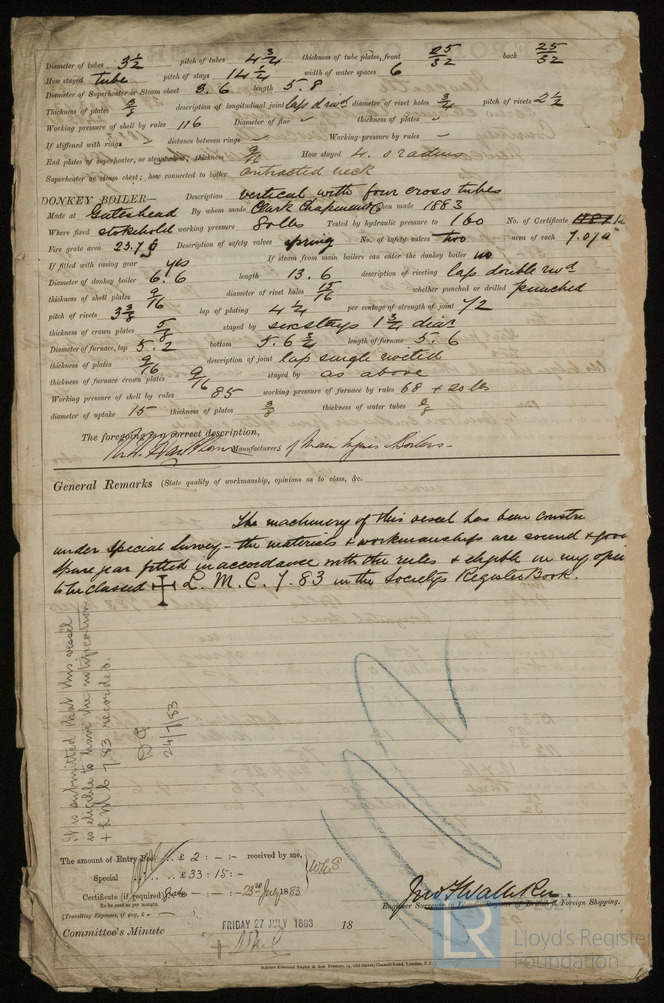 Diameter of tubes 3 1/2 pitch of tubes 4 3/4 thickness of tube plates, front 25/32 back 25/32
How stayed tube pitch of stays 14 1/4 width of water spaces 6
Diameter of Superheater or Steam chest 3.6 length 5.8
Thickness of plates 3/8 description of longitudinal joint lap d rivd diameter of rivet holes 3/4 pitch of rivets 2 1/2
Working pressure of shell by rules 116 Diameter of flue ~ thickness of plates ~
If stiffened with rings ~ distance between rings ~ Working pressure by rules ~
End plates of superheater, or steam chest, thickness 9/16 How stayed 4.0 radius
Superheater or steam chest; how connected to boiler contracted neck
DONKEY BOILER— Description vertical with four cross tubes
Made at Gateshead By whom made Clark Chapman & Co when made 1883
Where fixed stokehold working pressure 80 lbs Tested by hydraulic pressure to 160 No. of Certificate
Fire grate area 23.76 Description of safety valves spring No. of safety valves two area of each 7.07"
If fitted with easing gear yes If steam from main boilers can enter the donkey boiler no
Diameter of donkey boiler 6.6 length 13.6 description of riveting lap double rivd
thickness of shell plates 9/16 diameter of rivet holes 15/16 whether punched or drilled punched
pitch of rivets 3 3/8 lap of plating 4 1/4 per centage of strength of joint 72
thickness of crown plates 5/8 stayed by six stays 1 3/4 diar
Diameter of furnace, top 5.2 bottom 5.6 3/4 length of furnace 5.6
thickness of plates 9/16 description of joint lap single riveted
thickness of furnace crown plates 9/16 stayed by as above
Working pressure of shell by rules 85 working pressure of furnace by rules 68 + 20 lbs
diameter of uptake 15 thickness of plates 3/8 thickness of water tubes 3/8
The foregoing is a correct description,
Manufacturer of Main Engines Boilers
General Remarks (State quality of workmanship, opinions as to class, &c.
The machinery of this vessel has been constru
under Special Survey - the materials & workmanship are sound & goo
Spare gear fitted in accordance with the rules & eligible in my opin
to be classed ✠ L.M.C. 7.83 in the Society's Register Book.
It is submitted that this vessel
is eligible to have the notification
+ LMC 7/83 recorded.
24/7/83
The amount of Entry Fee .. £ 2 : - : - received by me,
Special .. £ 33 : 15 : -
Certificate (if required) : - : - 23rd July 1883
To be sent as per margin.
(Travelling Expenses, if any, £
Engineer Surveyor to Lloyd's Register of British & Foreign Shipping.
Committee's Minute FRIDAY 27 JULY 1883 18
Lloyd's Register
Foundation